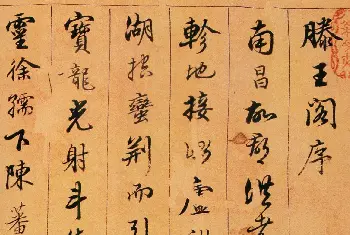 滕王阁序
南昌故郡洪
軫地接
湖控蠻荆而引
寶龍光射斗
靈徐孺下陳蕃